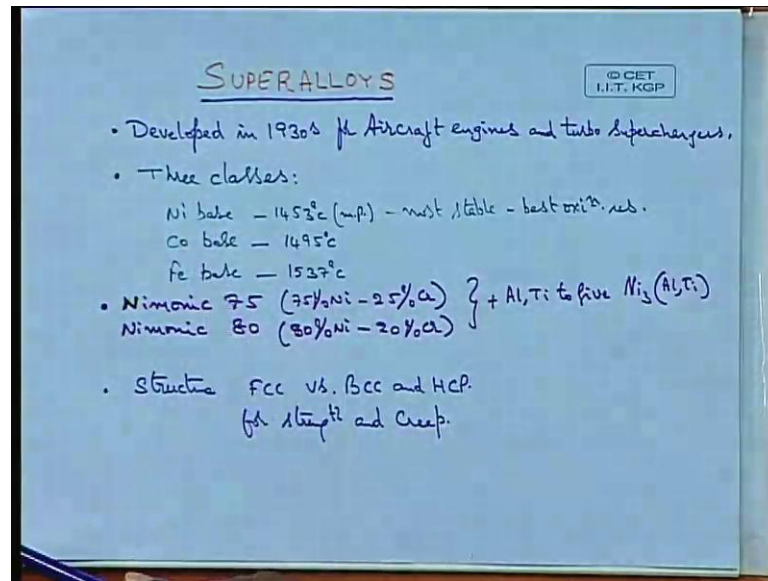 SUPERALLOYS
© CET
I.I.T. KGP
• Developed in 1930s for Aircraft engines and turbo Superchargers.
• Three classes:
Ni base – 1453°C (m.p.) – most stable – best oxiⁿ. res.
Co base – 1495°C
Fe base – 1537°C
• Nimonic 75 (75%Ni – 25%Cr) } + Al, Ti to give Ni₃(Al,Ti)
Nimonic 80 (80%Ni – 20%Cr)
• Structure FCC vs. BCC and HCP.
for strength and Creep.